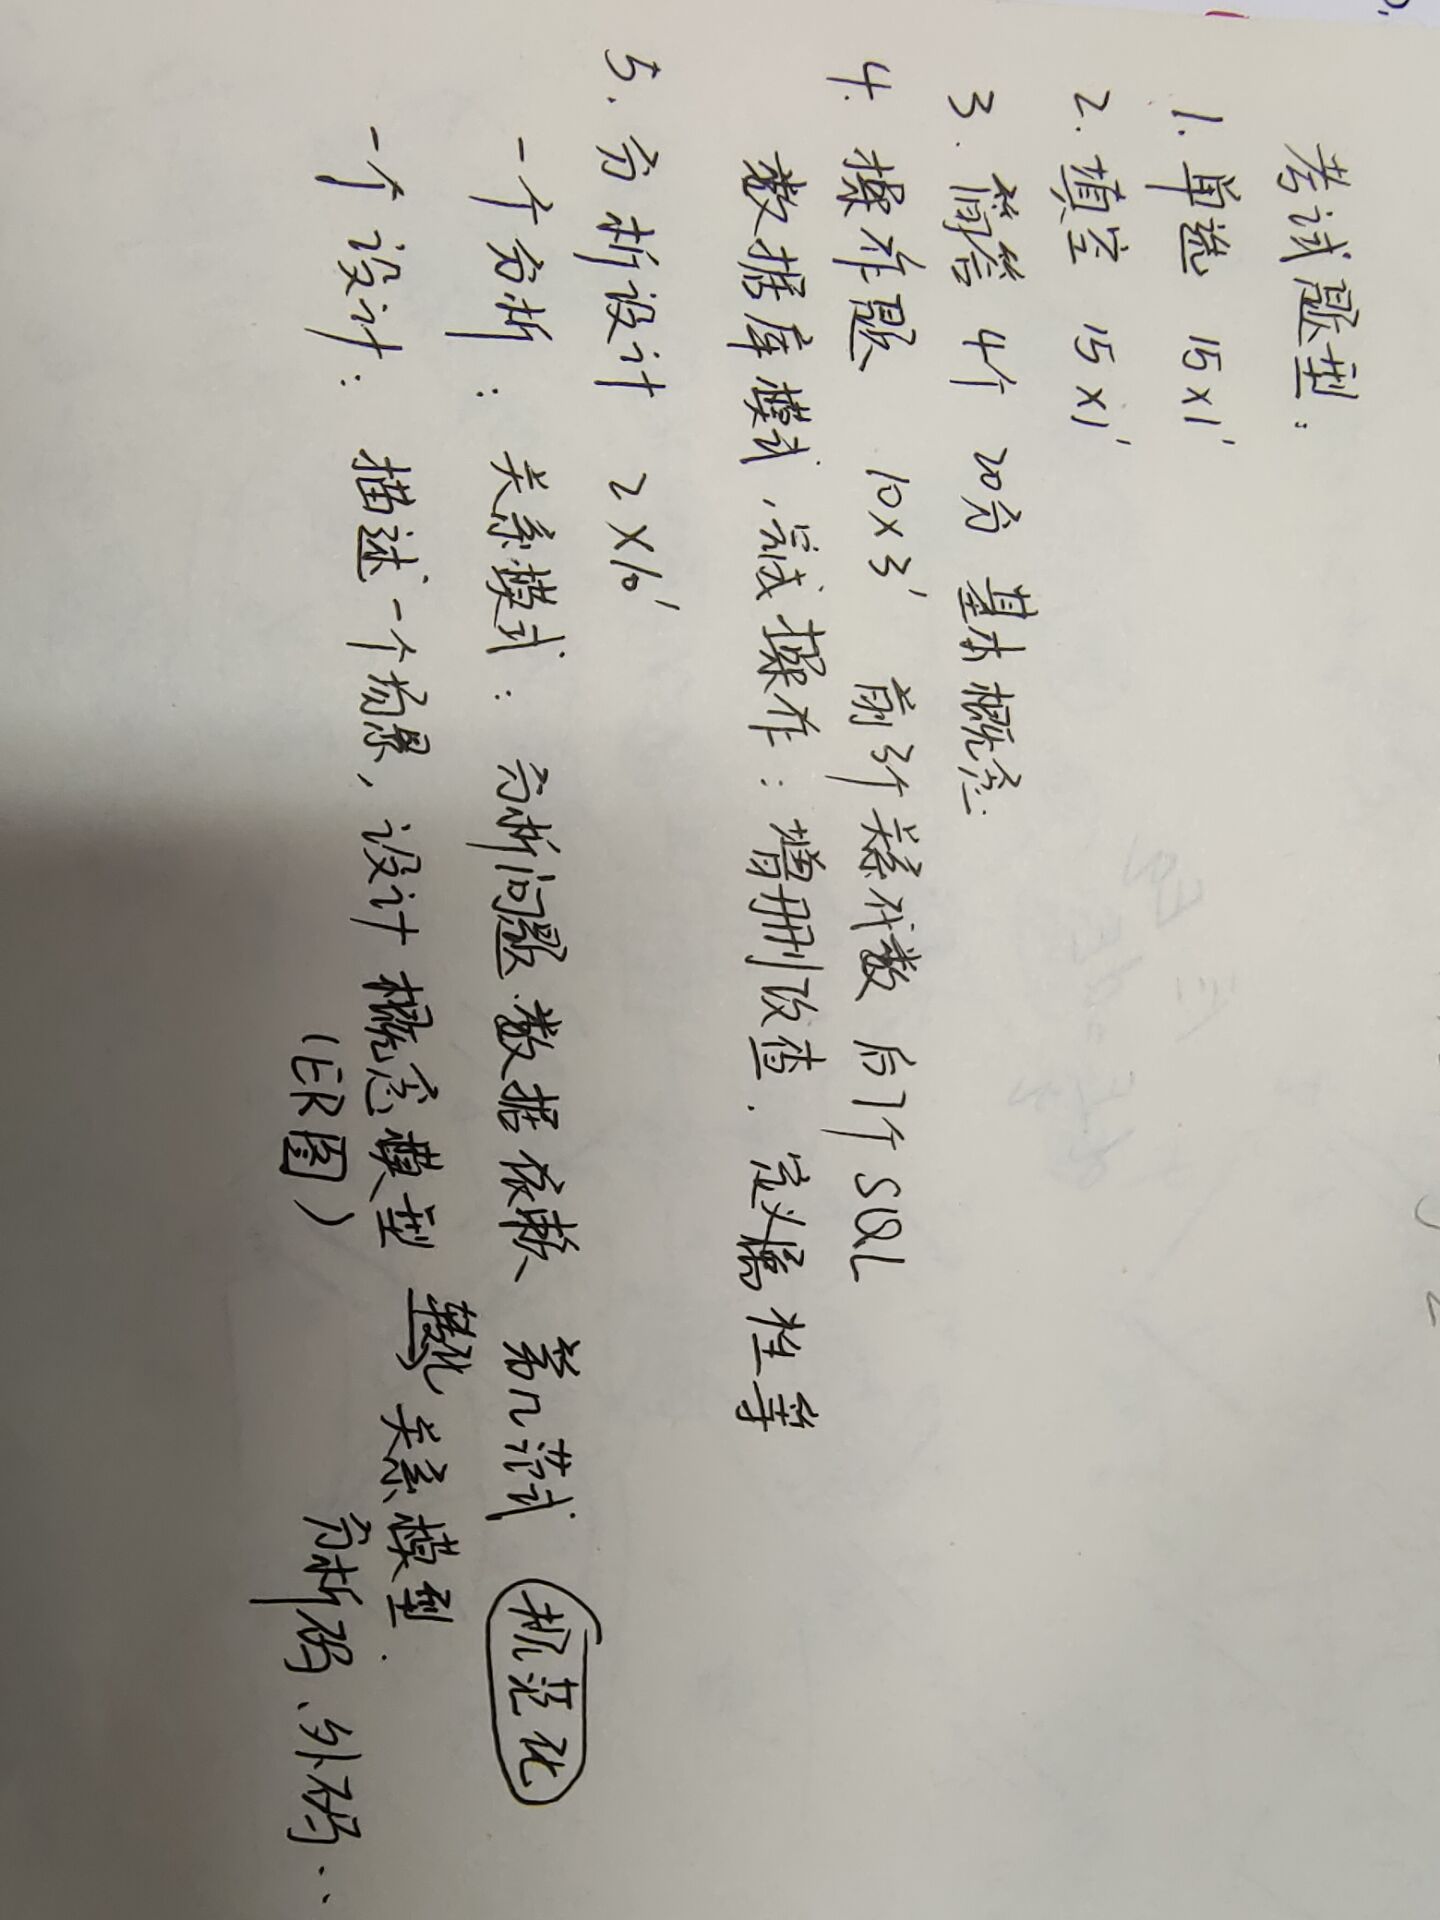 考试题型:
1. 单选 15×1′
2. 填空 15×1′
3. 简答 4个 20分 基本概念
4. 操作题 10×3′ 前3个关系代数 后7个SQL
数据库模式,完成操作:增删改查、定义属性等
5. 分析设计 2×10′
一个分析:关系模式:分析问题.数据依赖 第几范式 规范化
一个设计:描述一个场景,设计概念模型 转化→ 关系模型.
(ER图) 分析码、外码..